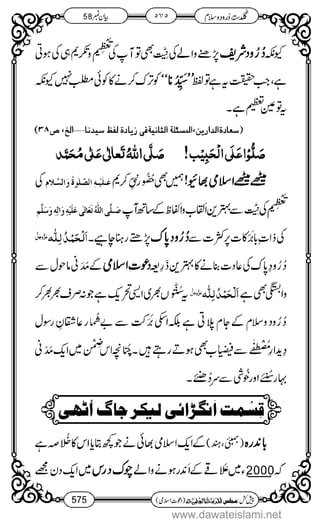 بیان نمبر 58
٥٧٥
گلدستۂ درود و سلام
کیونکہ دُرُود شریف پڑھنے والے کی نیّت بھی تو آپ کی تعظیم و تکریم ہی کی ہوتی
ہے، جب حقیقت یہ ہے تو لفظِ ’’سَیِّدُنا‘‘ کو ترک کرنے کا کوئی مطلب نہیں کیونکہ
یہی تو عین تعظیم ہے۔
(سعادة الدارین، المسئلة الثانیة فی زیادة لفظ سیدنا....الخ، ص ٣٨)
صَلُّوْا عَلَی الْحَبِیْب! صَلَّی اللّٰهُ تَعَالٰی عَلٰی مُحَمَّد
میٹھے میٹھے اسلامی بھائیو! ہمیں بھی حُضُور نبیِّ کریم عَلَیْہِ الصَّلٰوۃُ وَالسَّلَام کی
تعظیم کی نیّت سے بہترین القابات و الفاظ کے ساتھ آپ صَلَّی اللّٰهُ تَعَالٰی عَلَیْہِ وَاٰلِہٖ وَسَلَّم
کی ذاتِ بابرکات پر کثرت سے دُرُودِ پاک پڑھتے رہنا چاہیے۔ اَلْحَمْدُ لِلّٰہ عَزَّوَجَلَّ
دُرُودِ پاک کی عادت بنانے کا بہترین ذریعہ دعوتِ اسلامی کے مَدَنی ماحول سے
وابستگی بھی ہے اَلْحَمْدُ لِلّٰہ عَزَّوَجَلَّ یہ سُنّتوں بھری اسلامی تحریک ہے جو نہ صرف بھر بھر کر
دُرُود و سلام کے جام پلاتی ہے بلکہ اسکی برکت سے بے شمار عاشقانِ رسول
دیدارِ مُصْطَفٰے سے فیضیاب بھی ہوتے رہتے ہیں۔ چنانچہ اس ضِمْن میں ایک مَدَنی
بہار سُنئے اور خوشی سے سر دُھنئے۔
قِسْمت اَنگڑائی لیکر جاگ اُٹھی
باندرہ (بمبئی، ہند) کے ایک اسلامی بھائی نے جو کچھ بتایا اس کا خُلاصہ ہے
کہ 2000ء میں علاقے کے اندر ہونے والے چوک درس میں ایک دن مجھے
575
www.dawateislami.net